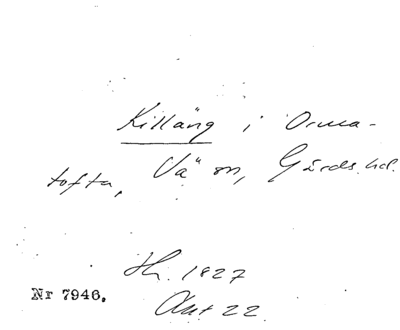 Killäng i Orma-
tofta, Vä sn, Gärds hd.
Sk. 1827
Akt 22
Nr 7946.